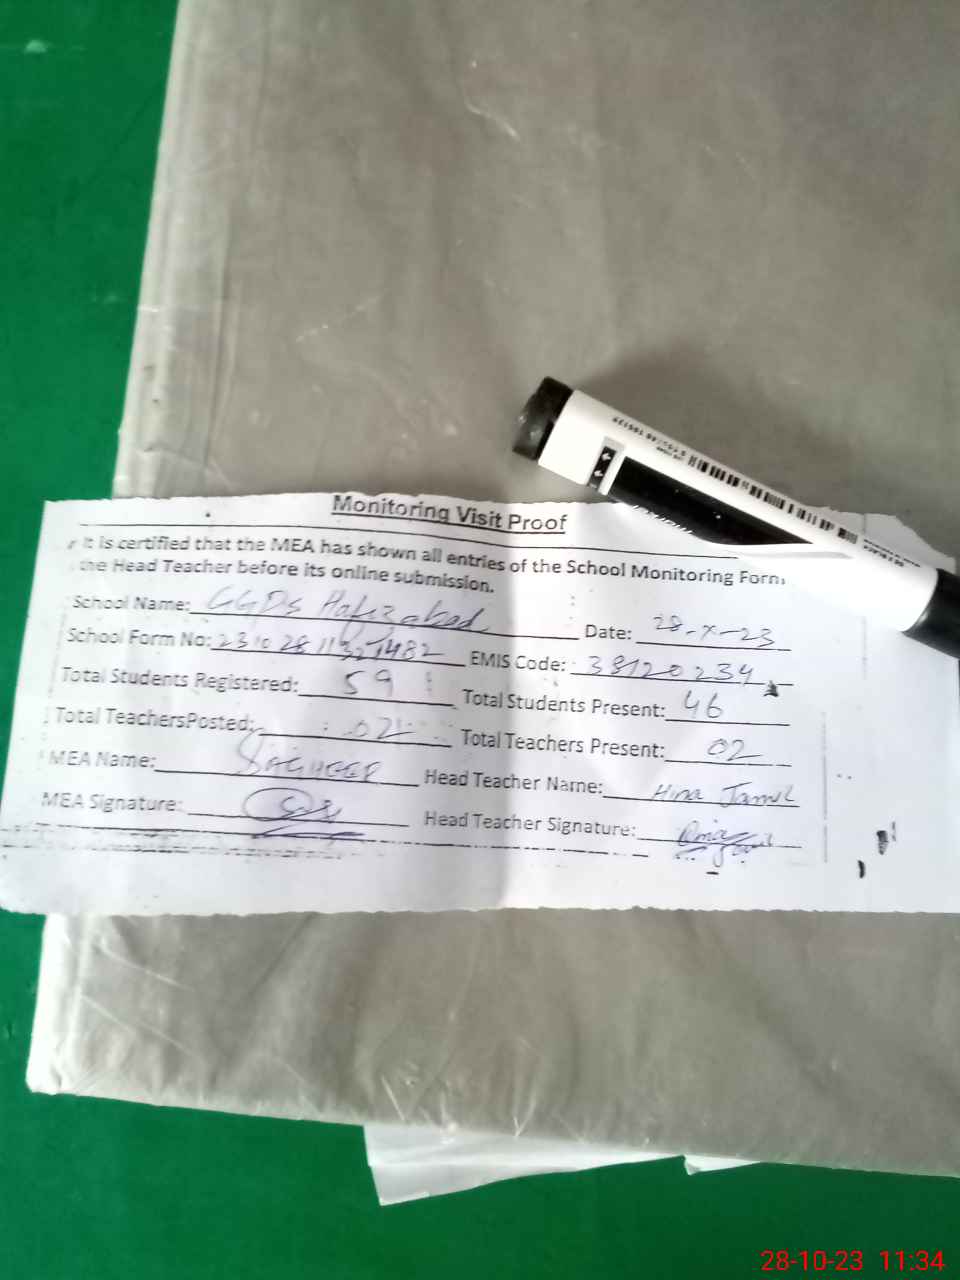 Monitoring Visit Proof
It is certified that the MEA has shown all entries of the School Monitoring Form
the Head Teacher before its online submission.
School Name: GGPS Hafizabad Date: 28-X-23
School Form No: EMIS Code: 38120234
Total Students Registered: 59 Total Students Present: 46
Total TeachersPosted: 02 Total Teachers Present: 02
MEA Name: SAGHEER Head Teacher Name: Hina Jamil
MEA Signature: Head Teacher Signature:
28-10-23 11:34